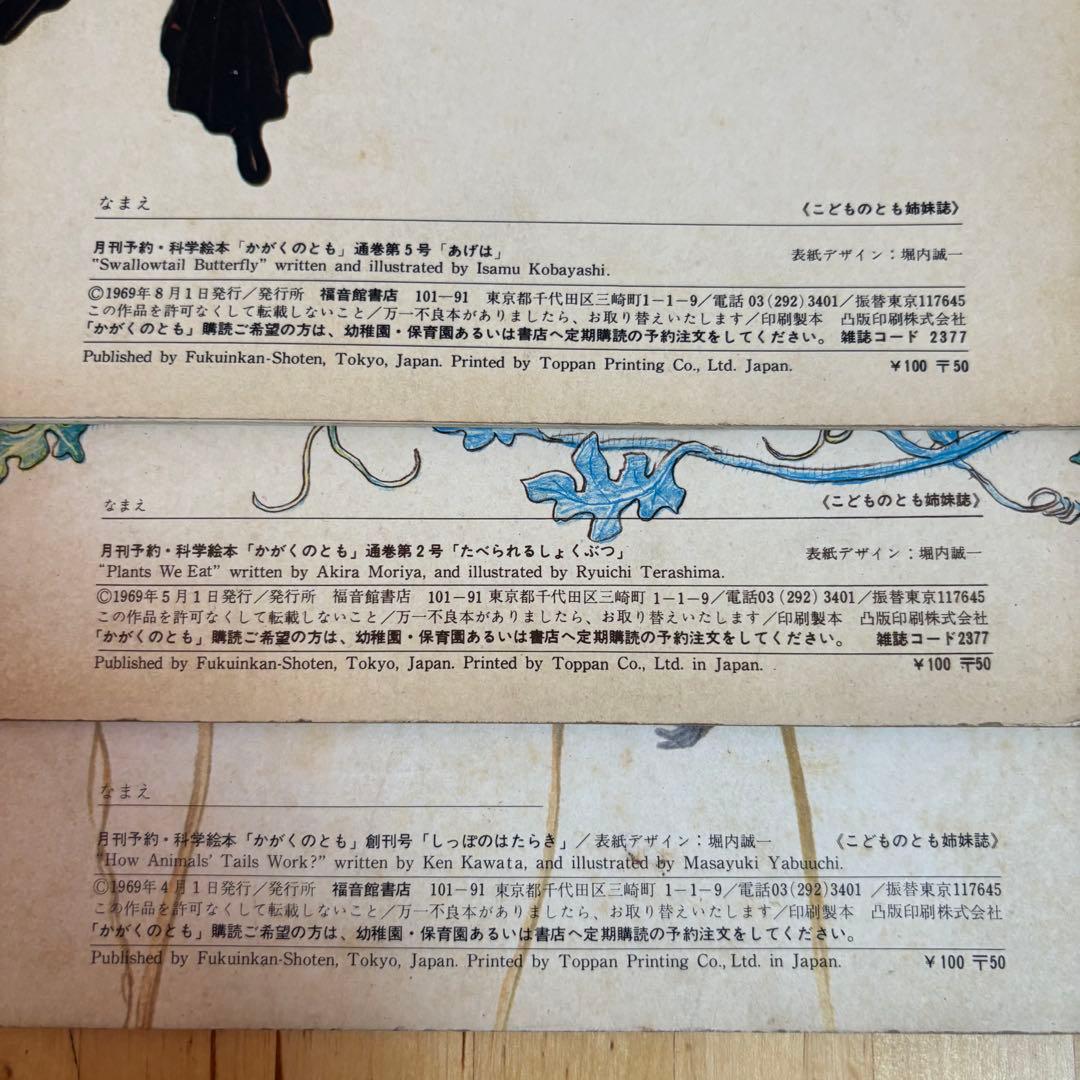 なまえ
《こどものとも姉妹誌》
月刊予約・科学絵本「かがくのとも」通巻第5号「あげは」
表紙デザイン：堀内誠一
"Swallowtail Butterfly" written and illustrated by Isamu Kobayashi.
©1969年8月1日発行／発行所 福音館書店 101-91 東京都千代田区三崎町1-1-9／電話 03(292)3401／振替東京117645
この作品を許可なくして転載しないこと／万一不良本がありましたら、お取り替えいたします／印刷製本 凸版印刷株式会社
「かがくのとも」購読ご希望の方は、幼稚園・保育園あるいは書店へ定期購読の予約注文をしてください。 雑誌コード 2377
Published by Fukuinkan-Shoten, Tokyo, Japan. Printed by Toppan Printing Co., Ltd. Japan. ¥100 〒50
なまえ
《こどものとも姉妹誌》
月刊予約・科学絵本「かがくのとも」通巻第2号「たべられるしょくぶつ」
表紙デザイン：堀内誠一
"Plants We Eat" written by Akira Moriya, and illustrated by Ryuichi Terashima.
©1969年5月1日発行／発行所 福音館書店 101-91 東京都千代田区三崎町 1-1-9／電話03(292)3401／振替東京117645
この作品を許可なくして転載しないこと／万一不良本がありましたら、お取り替えいたします／印刷製本 凸版印刷株式会社
「かがくのとも」購読ご希望の方は、幼稚園・保育園あるいは書店へ定期購読の予約注文をしてください。 雑誌コード2377
Published by Fukuinkan-Shoten, Tokyo, Japan. Printed by Toppan Co., Ltd. in Japan. ¥100 〒50
なまえ
月刊予約・科学絵本「かがくのとも」創刊号「しっぽのはたらき」／表紙デザイン：堀内誠一 《こどものとも姉妹誌》
"How Animals' Tails Work?" written by Ken Kawata, and illustrated by Masayuki Yabuuchi.
©1969年4月1日発行／発行所 福音館書店 101-91 東京都千代田区三崎町 1-1-9／電話03(292)3401／振替東京117645
この作品を許可なくして転載しないこと／万一不良本がありましたら、お取り替えいたします／印刷製本 凸版印刷株式会社
「かがくのとも」購読ご希望の方は、幼稚園・保育園あるいは書店へ定期購読の予約注文をしてください。
Published by Fukuinkan-Shoten, Tokyo, Japan. Printed by Toppan Printing Co., Ltd. in Japan. ¥100 〒50